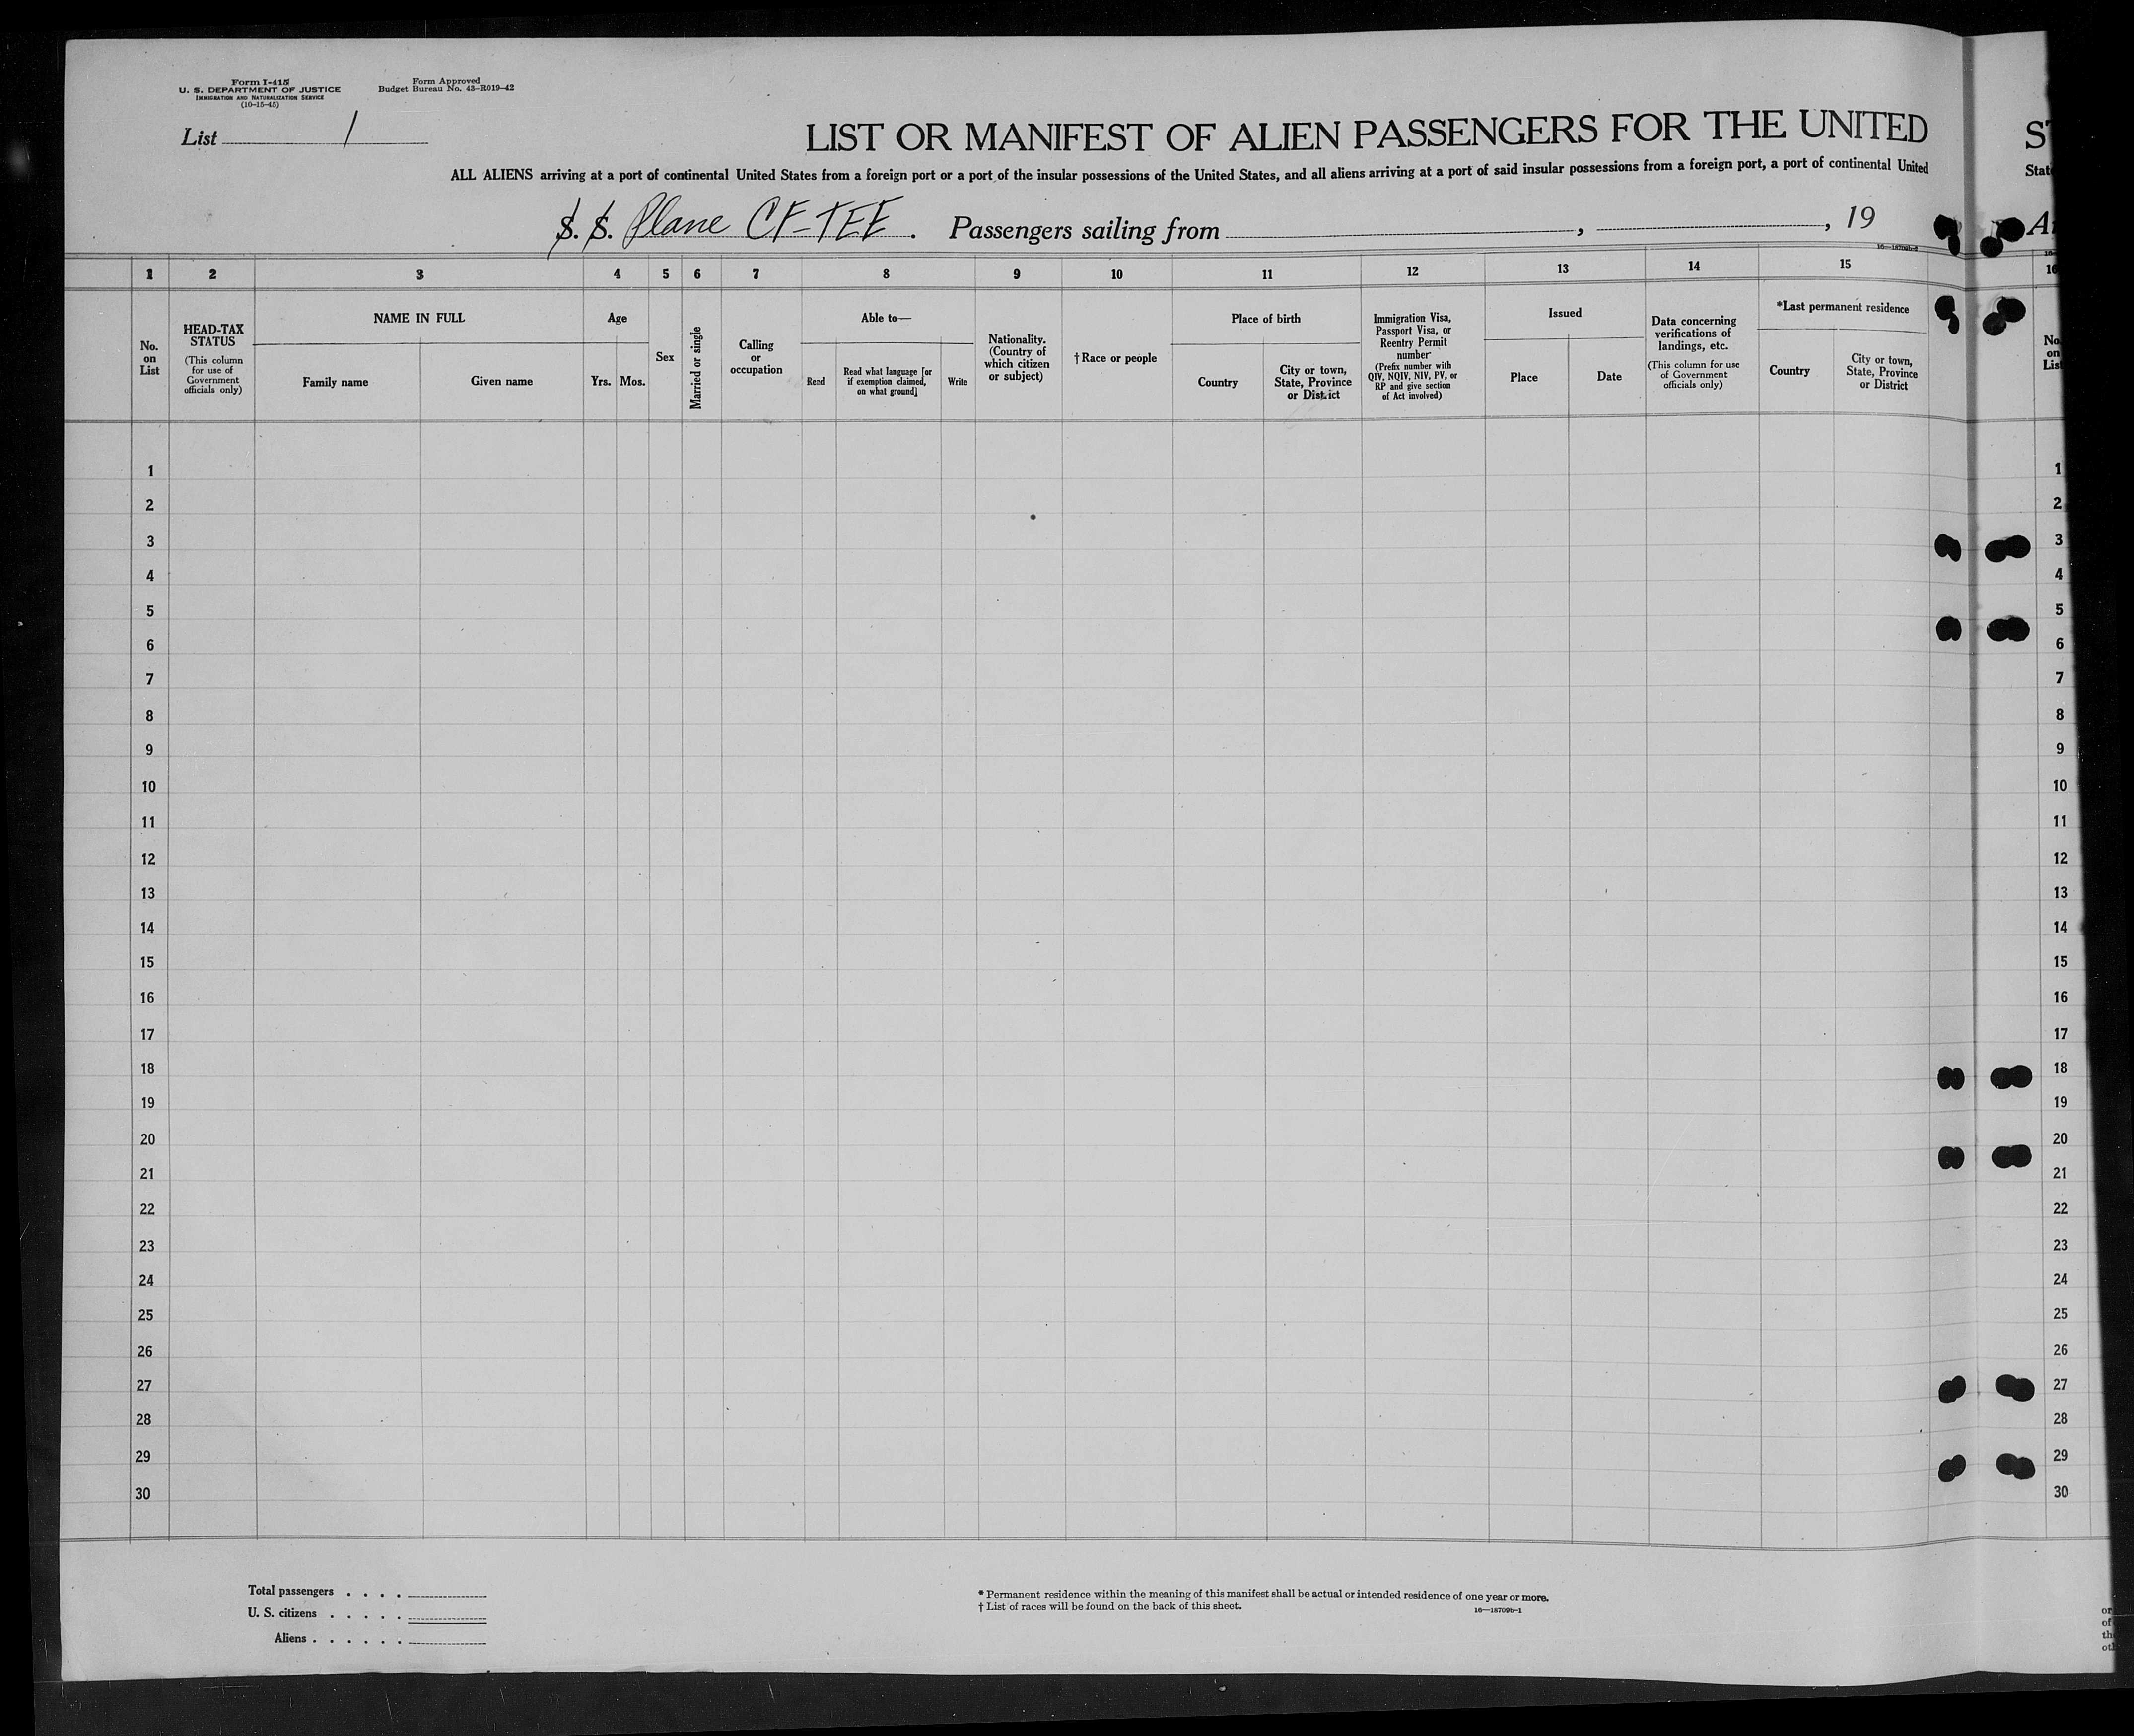 Form I-415
U. S. DEPARTMENT OF JUSTICE
IMMIGRATION AND NATURALIZATION SERVICE
(10-15-45)
Form Approved
Budget Bureau No. 43-R019-42
List 1
LIST OR MANIFEST OF ALIEN PASSENGERS FOR THE UNITED
ST
ALL ALIENS arriving at a port of continental United States from a foreign port or a port of the insular possessions of the United States, and all aliens arriving at a port of said insular possessions from a foreign port, a port of continental United
State
S. S. Plane CF-TEE . Passengers sailing from , , 19
16—18709b-2
1 2 3 4 5 6 7 8 9 10 11 12 13 14 15
16
No. on List
HEAD-TAX STATUS
(This column for use of Government officials only)
NAME IN FULL
Family name
Given name
Age
Yrs.
Mos.
Sex
Married or single
Calling or occupation
Able to—
Read
Read what language [or if exemption claimed, on what ground]
Write
Nationality. (Country of which citizen or subject)
†Race or people
Place of birth
Country
City or town, State, Province or District
Immigration Visa, Passport Visa, or Reentry Permit number
(Prefix number with QIV, NQIV, NIV, PV, or RP and give section of Act involved)
Issued
Place
Date
Data concerning verifications of landings, etc.
(This column for use of Government officials only)
*Last permanent residence
Country
City or town, State, Province or District
No. on List
1 1
2 2
3 3
4 4
5 5
6 6
7 7
8 8
9 9
10 10
11 11
12 12
13 13
14 14
15 15
16 16
17 17
18 18
19 19
20 20
21 21
22 22
23 23
24 24
25 25
26 26
27 27
28 28
29 29
30 30
Total passengers . . . .
U. S. citizens . . . . .
Aliens . . . . . .
* Permanent residence within the meaning of this manifest shall be actual or intended residence of one year or more.
† List of races will be found on the back of this sheet.
16—18709b-1
or
of
th